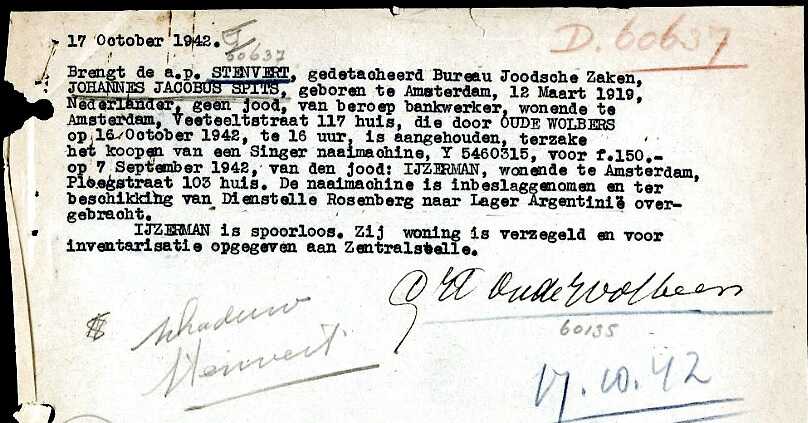 17 October 1942.
60637
D. 60637
Brengt de a.p. STENVERT, gedetacheerd Bureau Joodsche Zaken,
JOHANNES JACOBUS SPITS, geboren te Amsterdam, 12 Maart 1919,
Nederlander, geen jood, van beroep bankwerker, wonende te
Amsterdam, Veeteeltstraat 117 huis, die door OUDE WOLBERS
op 16 October 1942, te 16 uur, is aangehouden, terzake
het koopen van een Singer naaimachine, Y 5460315, voor f.150.-
op 7 September 1942, van den jood: IJZERMAN, wonende te Amsterdam,
Ploegstraat 103 huis. De naaimachine is inbeslaggenomen en ter
beschikking van Dienstelle Rosenberg naar Lager Argentinië over-
gebracht.
IJZERMAN is spoorloos. Zij woning is verzegeld en voor
inventarisatie opgegeven aan Zentralstelle.
schaduw
Stenvert
60135
17.10.42